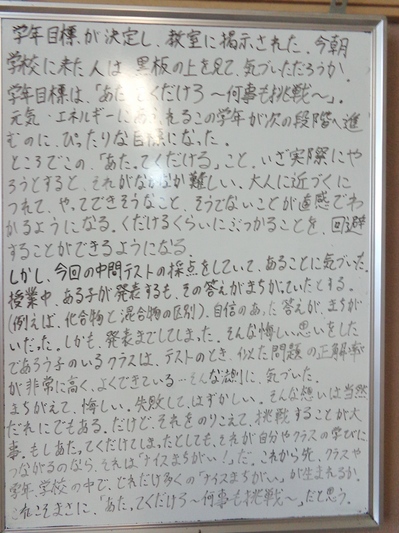 学年目標が決定し、教室に掲示された。今朝
学校に来た人は、黒板の上を見て、気づいただろうか。
学年目標は、「あたってくだけろ ～何事も挑戦～」。
元気・エネルギーにあふれるこの学年が次の段階へ進
むのに、ぴったりな目標になった。
ところでこの、「あたってくだける」こと、いざ実際にや
ろうとすると、それがなかなか難しい。大人に近づくに
つれて、やってできそうなこと、そうでないことが直感でわ
かるようになる。くだけるくらいにぶつかることを、回避
することができるようになる。
しかし、今回の中間テストの採点をしていて、あることに気づいた。
授業中、ある子が発表するも、その答えがまちがっていたとする。
(例えば、化合物と混合物の区別)。自信のあった答えが、まちが
いだった。しかも、発表までしてしまった。そんな悔しい思いをした
であろう子のいるクラスは、テストのとき、似た問題の正解率
が非常に高く、よくできている…そんな法則に、気づいた。
まちがえて、悔しい。失敗して、はずかしい。そんな想いは当然
だれにでもある。だけど、それをのりこえて、挑戦することが大
事。もしあたってくだけてしまったとしても、それが自分やクラスの学びに
つながるのなら、それは「ナイスまちがい！」だ。これから先、クラスや
学年、学校の中で、どれだけ多くの「ナイスまちがい」が生まれるか。
これこそまさに、「あたってくだけろ ～何事も挑戦～」だと思う。